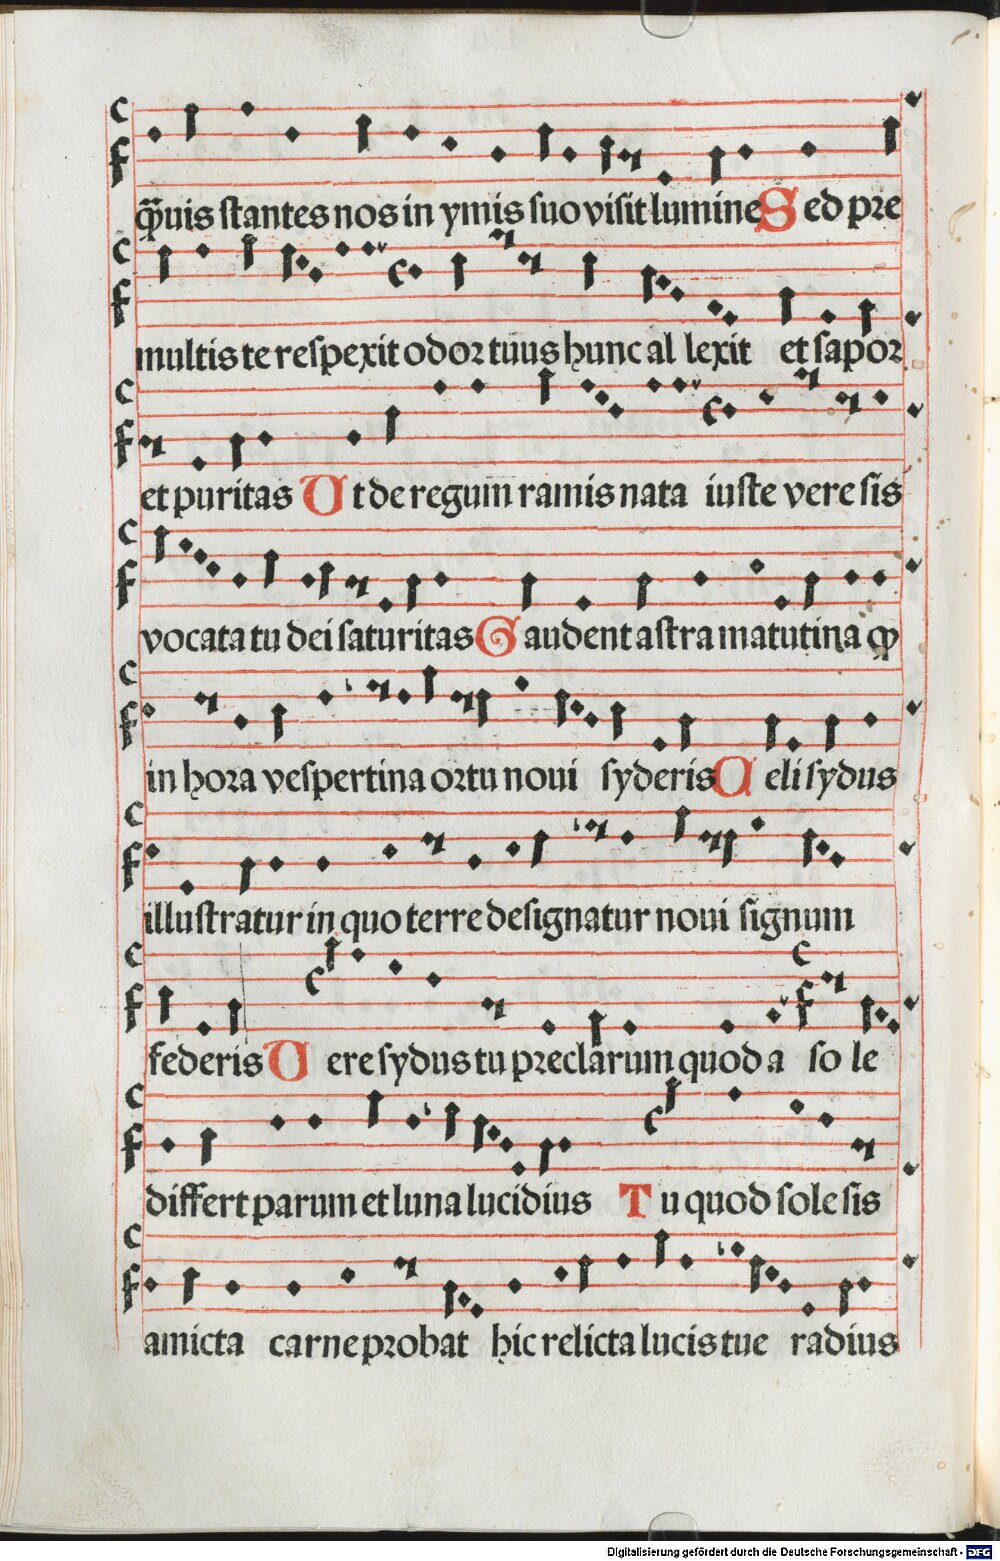 q̄uis stantes nos in ymis suo visit lumine Sed pre
multis te respexit odor tuus hunc al lexit et sapor
et puritas Ut de regum ramis nata iuste vere sis
vocata tu dei saturitas Gaudent astra matutina
in hora vespertina ortu noui syderis Celi sydus
illustratur in quo terre designatur noui signum
federis Vere sydus tu preclarum quod a so le
differt parum et luna lucidius Tu quod sole sis
amicta carne probat hic relicta lucis tue radius
Digitalisierung gefördert durch die Deutsche Forschungsgemeinschaft - DFG